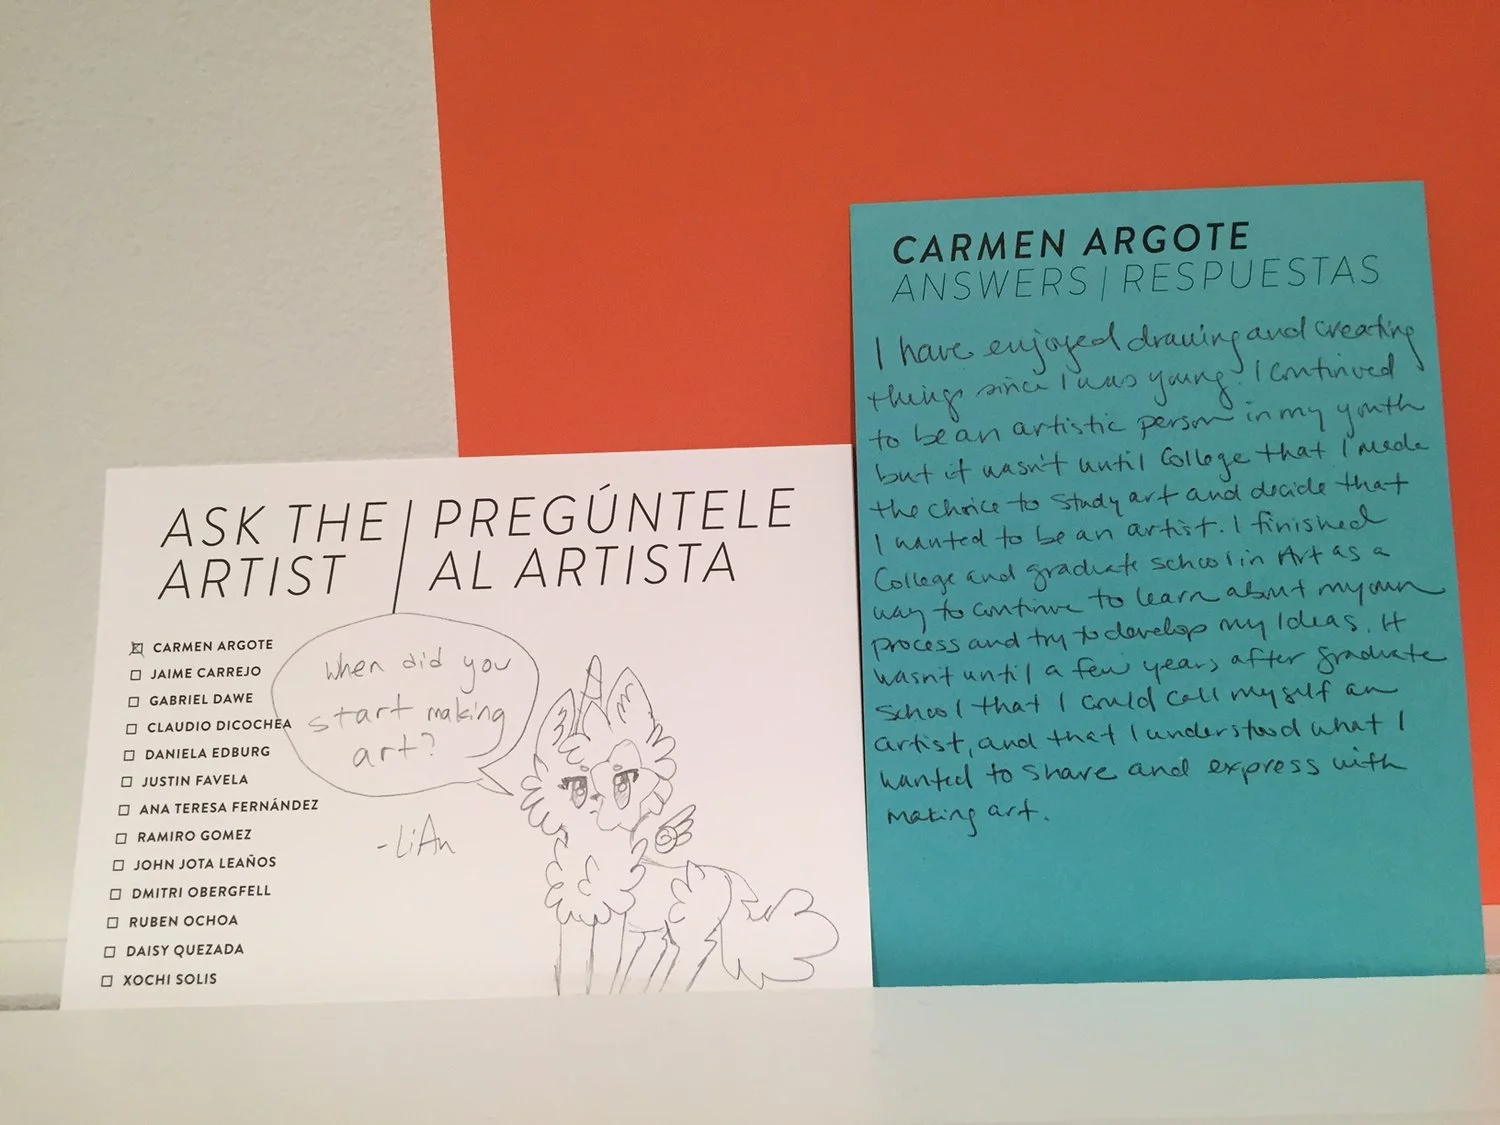 ASK THE ARTIST | PREGÚNTELE AL ARTISTA
CARMEN ARGOTE
JAIME CARREJO
GABRIEL DAWE
CLAUDIO DICOCHEA
DANIELA EDBURG
JUSTIN FAVELA
ANA TERESA FERNÁNDEZ
RAMIRO GOMEZ
JOHN JOTA LEAÑOS
DMITRI OBERGFELL
RUBEN OCHOA
DAISY QUEZADA
XOCHI SOLIS
When did you
start making
art?
-LiAn
CARMEN ARGOTE
ANSWERS | RESPUESTAS
I have enjoyed drawing and creating
things since I was young. I continued
to be an artistic person in my youth
but it wasn't until College that I made
the choice to study art and decide that
I wanted to be an artist. I finished
College and graduate school in Art as a
way to continue to learn about my own
process and try to develop my Ideas. It
wasn't until a few years after graduate
School that I could call myself an
artist, and that I understood what I
wanted to share and express with
making art.